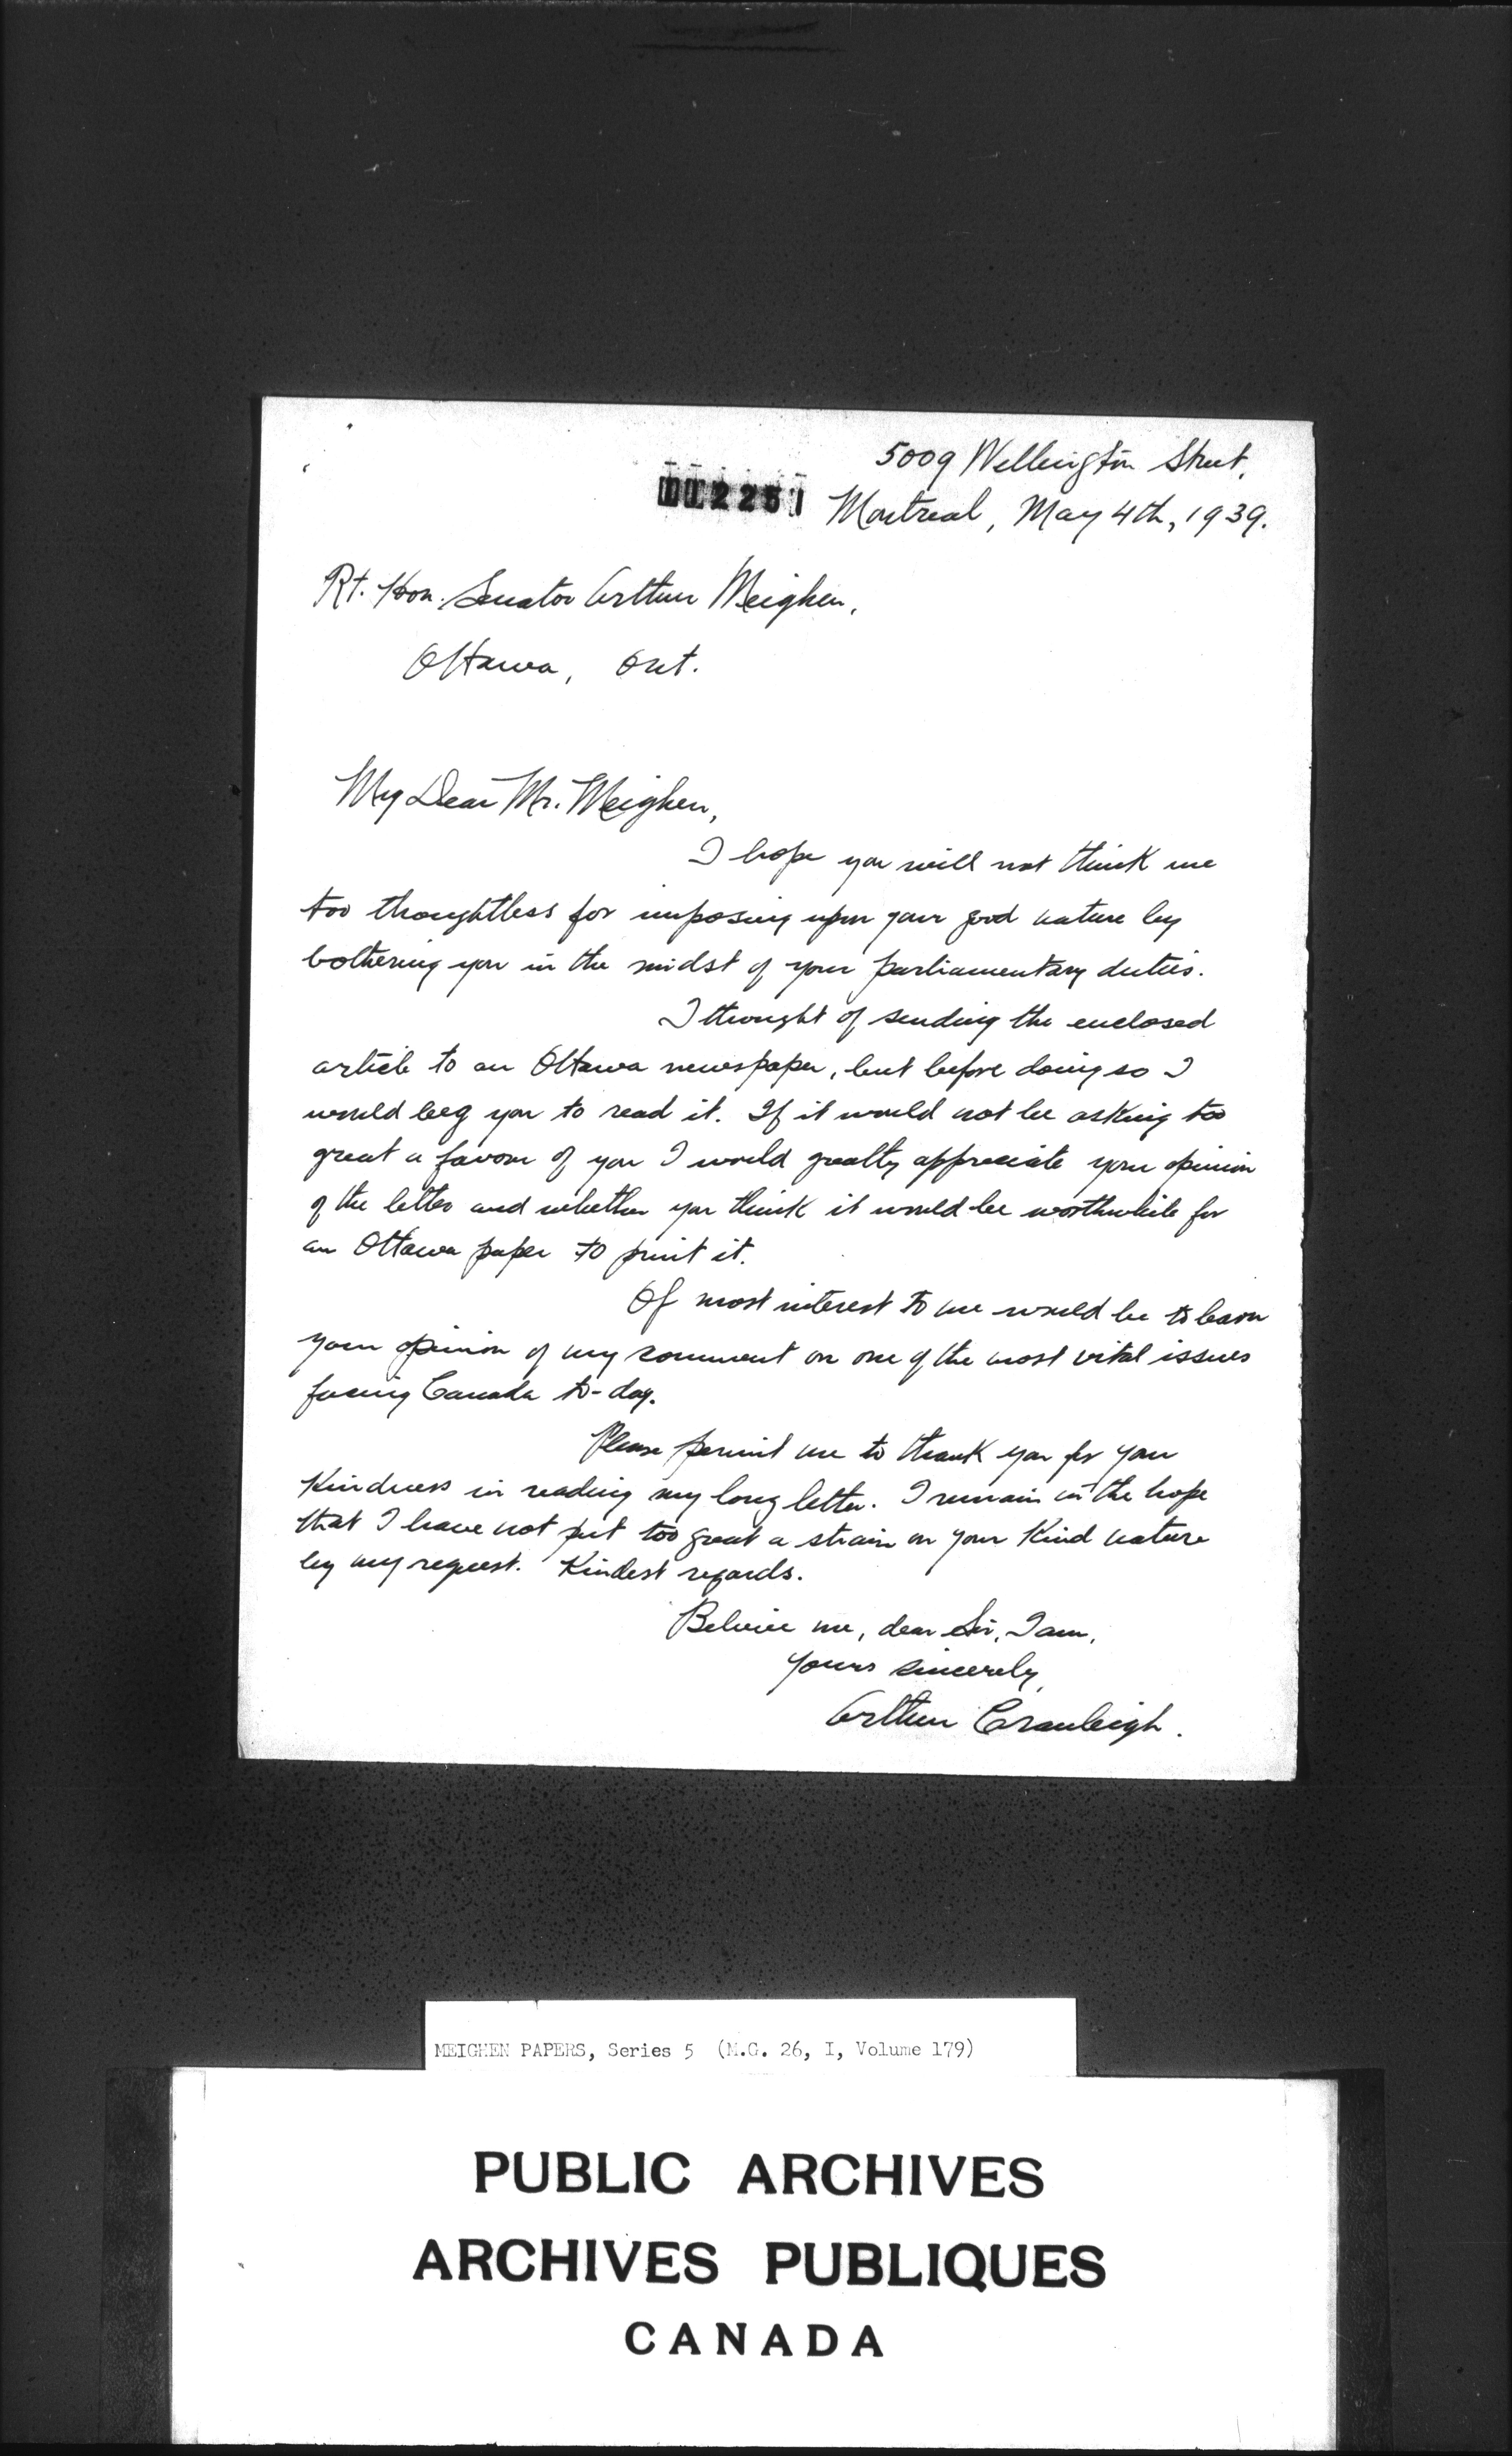 5009 Wellington Street,
Montreal, May 4th, 1939.
Rt. Hon. Senator Arthur Meighen,
Ottawa, Ont.
My Dear Mr. Meighen,
I hope you will not think me
too thoughtless for imposing upon your good nature by
bothering you in the midst of your parliamentary duties.
I thought of sending the enclosed
article to an Ottawa newspaper, but before doing so I
would beg you to read it. If it would not be asking too
great a favour of you I would greatly appreciate your opinion
of the letter and whether you think it would be worthwhile for
an Ottawa paper to print it.
Of most interest to me would be to learn
your opinion of my comment on one of the most vital issues
facing Canada to-day.
Please permit me to thank you for your
kindness in reading my long letter. I remain in the hope
that I have not put too great a strain on your kind nature
by my request. Kindest regards.
Believe me, dear Sir, I am,
Yours sincerely,
Arthur Cranleigh.
MEIGHEN PAPERS, Series 5 (M.G. 26, I, Volume 179)
PUBLIC ARCHIVES
ARCHIVES PUBLIQUES
CANADA